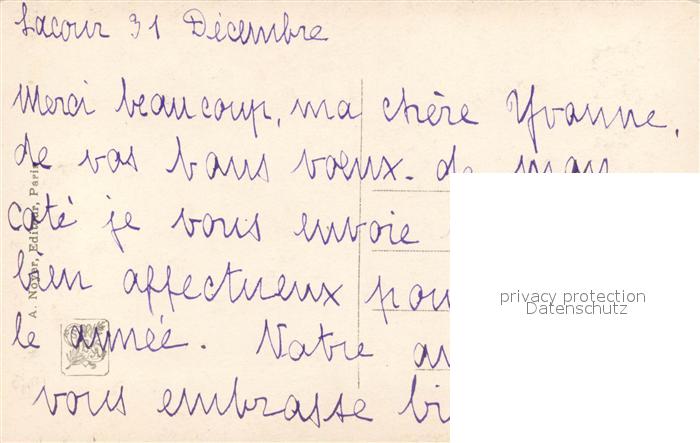 Lacour 31 Décembre
Merci beaucoup, ma chère Yvonne,
de vos bons voeux. de mon
coté je vous envoie
bien affectueux pour
le année. Votre
vous embrasse bi
A. Noyer, Editeur, Paris
privacy protection
Datenschutz